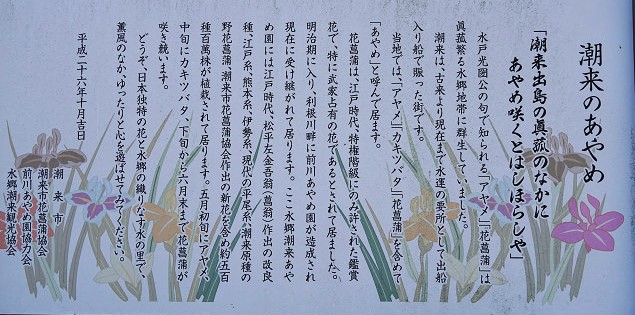 潮来のあやめ
「潮来出島の眞菰のなかに
あやめ咲くとはしほらしや」
水戸光圀公の句で知られる「アヤメ」「花菖蒲」は
眞菰繁る水郷地帯に群生していました。
潮来は、古来より現在まで水運の要所として出船
入り船で賑った街です。
当地では、「アヤメ」「カキツバタ」「花菖蒲」を含めて
「あやめ」と呼んで居ます。
花菖蒲は、江戸時代、特権階級にのみ許された鑑賞
花で、特に武家占有の花であるとされて居ました。
明治期に入り、利根川畔に前川あやめ園が造成され
現在に受け継がれて居ります。ここ水郷潮来あや
め園には江戸時代、松平左金吾翁（菖翁）作出の改良
種、江戸系、熊本系、伊勢系、現代の平尾系、潮来原種の
野花菖蒲、潮来市花菖蒲協会作出の新花を含め約五百
種百萬株が植栽されて居ります。五月初旬にアヤメ、
中旬にカキツバタ、下旬から六月末まで花菖蒲が
咲き競います。
どうぞ、日本独特の花と水郷の織りなす水の里で、
薫風のなか、ゆったりと心を遊ばせてみてください。
平成二十六年十月吉日
潮来市
潮来市花菖蒲協会
前川あやめ園協力会
水郷潮来観光協会